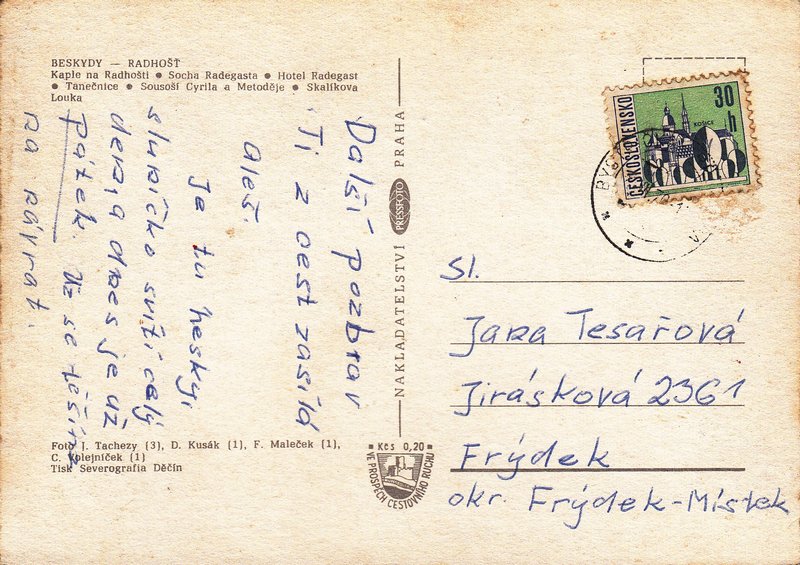 BESKYDY — RADHOŠŤ
Kaple na Radhošti ● Socha Radegasta ● Hotel Radegast
● Tanečnice ● Sousoší Cyrila a Metoděje ● Skalíkova
Louka
Další pozdrav
Ti z cest zasílá
Aleš.
Je tu hesky,
sluníčko svítí celý
den, a dnes je už
Pátek. Už se těším
na návrat.
NAKLADATELSTVÍ PRESSFOTO PRAHA
ČESKOSLOVENSKO
30 h
KOŠICE
Sl.
Jana Tesařová
Jirásková 2361
Frýdek
okr. Frýdek-Místek
Foto J. Tachezy (3), D. Kusák (1), F. Maleček (1),
C. Volejníček (1)
Tisk Severografia Děčín
Kčs 0,20
VE PROSPĚCH CESTOVNÍHO RUCHU